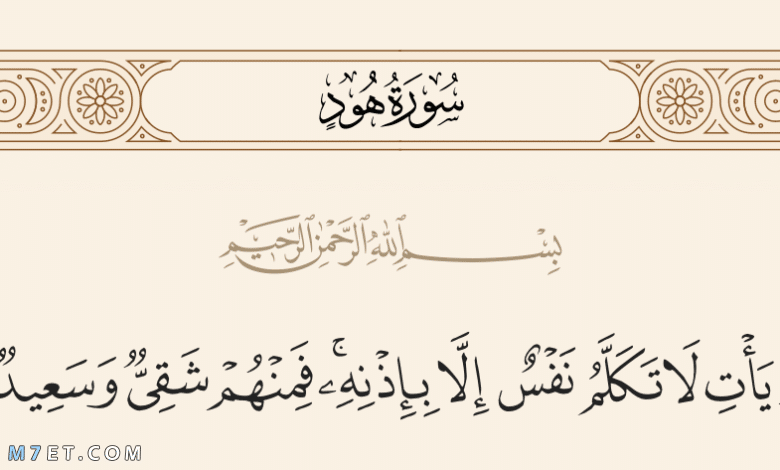 سُورَةُ هُودٍ
بِسْمِ ٱللَّهِ ٱلرَّحْمَٰنِ ٱلرَّحِيمِ
يَأْتِ لَا تَكَلَّمُ نَفْسٌ إِلَّا بِإِذْنِهِۦ ۚ فَمِنْهُمْ شَقِىٌّ وَسَعِيدٌ
M7ET.COM